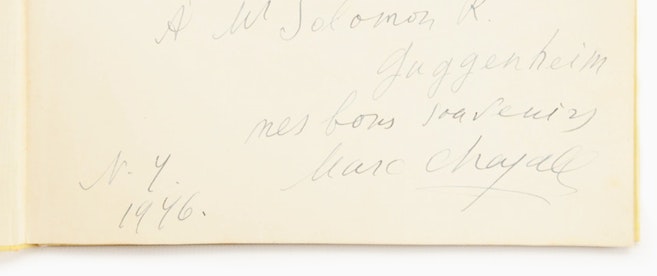 À Mr Solomon R.
Guggenheim
mes bons souvenirs
Marc Chagall
N. Y.
1946.